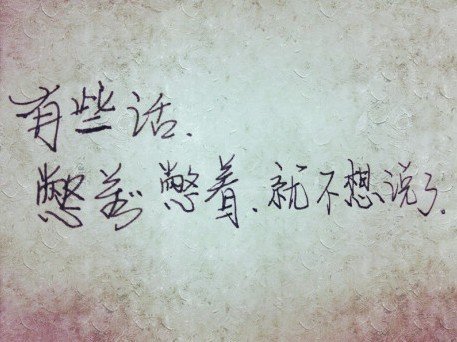 有些话.
憋着憋着.就不想说了.